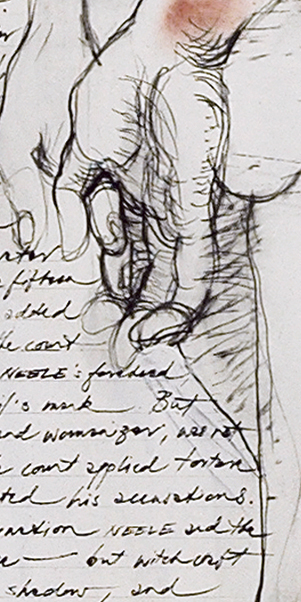 fifteen
added
the court
NEELE's forehead
's mark. But
and womanizer, was not
court applied torture
ted his accusations.
NEELE and the
— but witchcraft
shadow, and